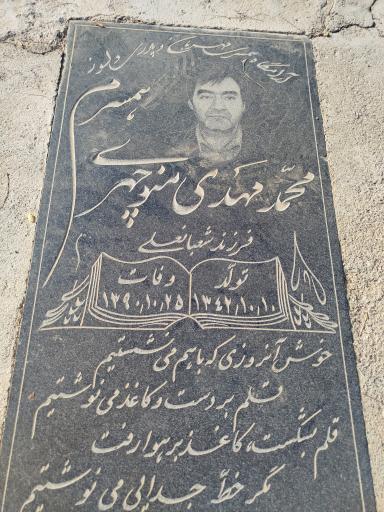 آرامگاه همسری مهربان پدری دلسوز
همسرم
محمد مهدی منوچهری
فرزند شعبانعلی
تولد وفات
۱۳۴۲/۱۰/۱۰ ۱۳۹۰/۱۰/۲۵
خوش آنروزی که باهم می نشستیم
قلم بر دست و کاغذ می نوشتیم
قلم بشکست کاغذ بر هوا رفت
مگر خط جدایی می نوشتیم